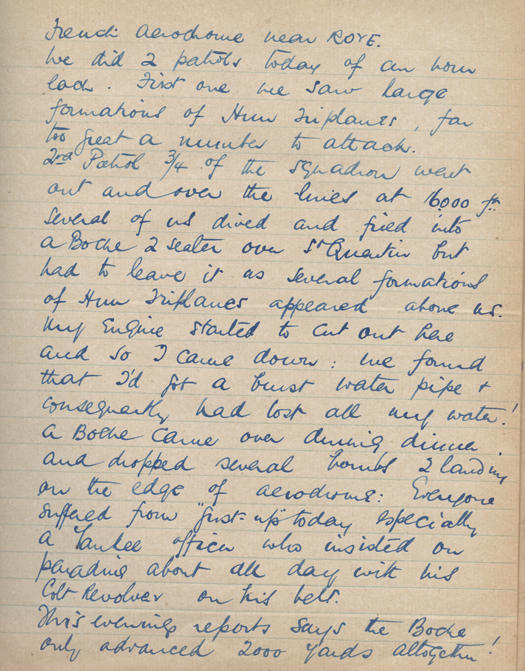 French Aerodrome near ROYE.
We did 2 patrols today of an hour
each. First one we saw large
formations of Hun Triplanes, far
too great a number to attack.
2nd Patrol 3/4 of the squadron went
out and over the lines at 16000 ft.
Several of us dived and fired into
a Boche 2 seater over St Quentin but
had to leave it as several formations
of Hun Triplanes appeared above us.
My Engine started to cut out here
and so I came down: we found
that I'd got a burst water pipe +
consequently had lost all my water!
A Boche came over during dinner
and dropped several bombs 2 landing
on the edge of aerodrome: Everyone
suffered from "gust-up" today especially
a Yankee officer who insisted on
parading about all day with his
Colt Revolver on his belt.
This evening reports says the Boche
only advanced 2000 yards altogether!